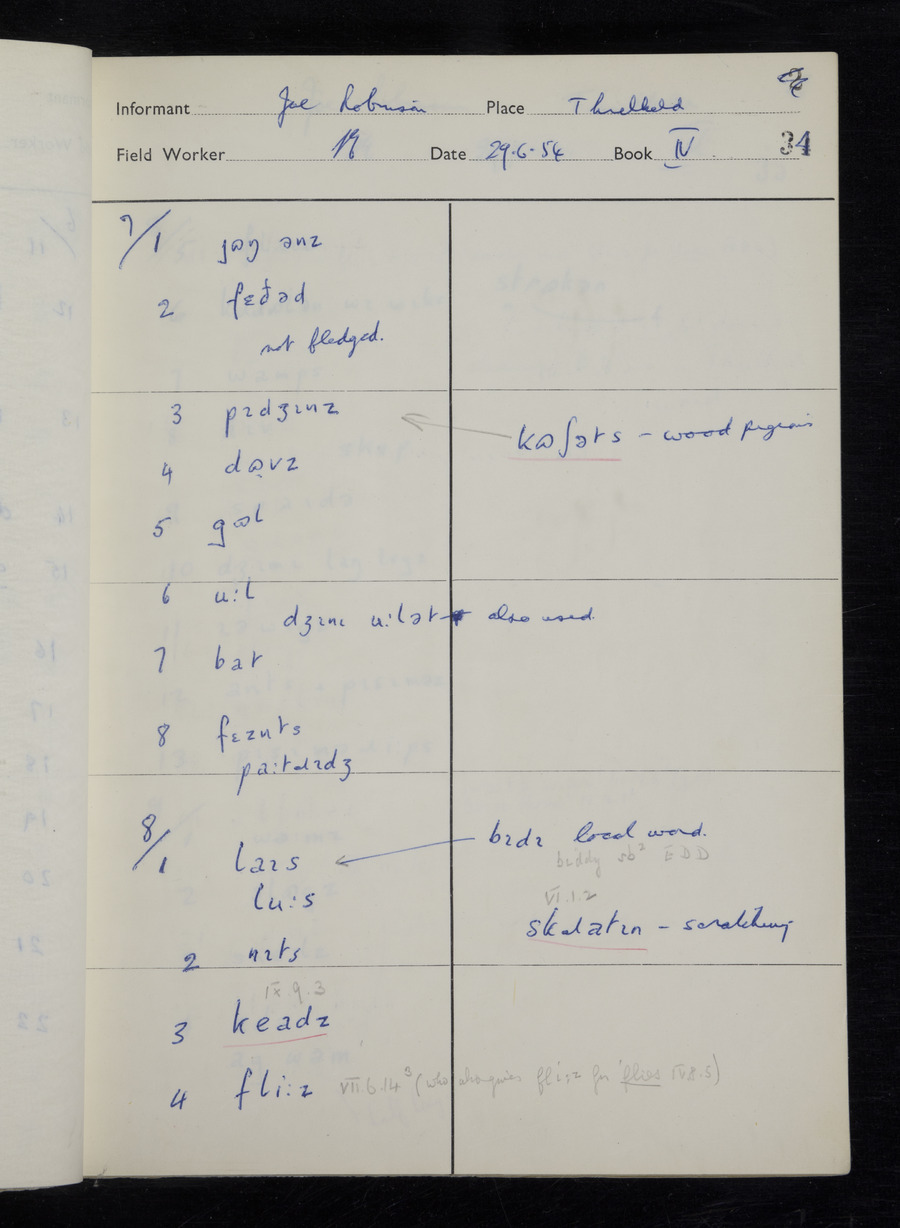 Informant Joe Robinson Place Threlkeld
Field Worker Date 29.6.54 Book IV 34
7/1 jɷŋ ənz
2 fɛðəd
not fledged.
3 pɪdʒɪnz
kɷʃəts – wood pigeons
4 dɷvz
5 gɷl
6 u:l
dʒɪnɪ u:lət also used.
7 bat
8 fɛznts
pa:tɹɪdʒ
8/1 laɪs
bɪdɪ local word.
biddy sb² EDD
lu:s
VI.1.2
skɹatɪn – scratching
2 nɪts
IX.9.3
3 keadz
4 fli:z VII.6.14³ (who also gives fli:z for flies IV.8.5)